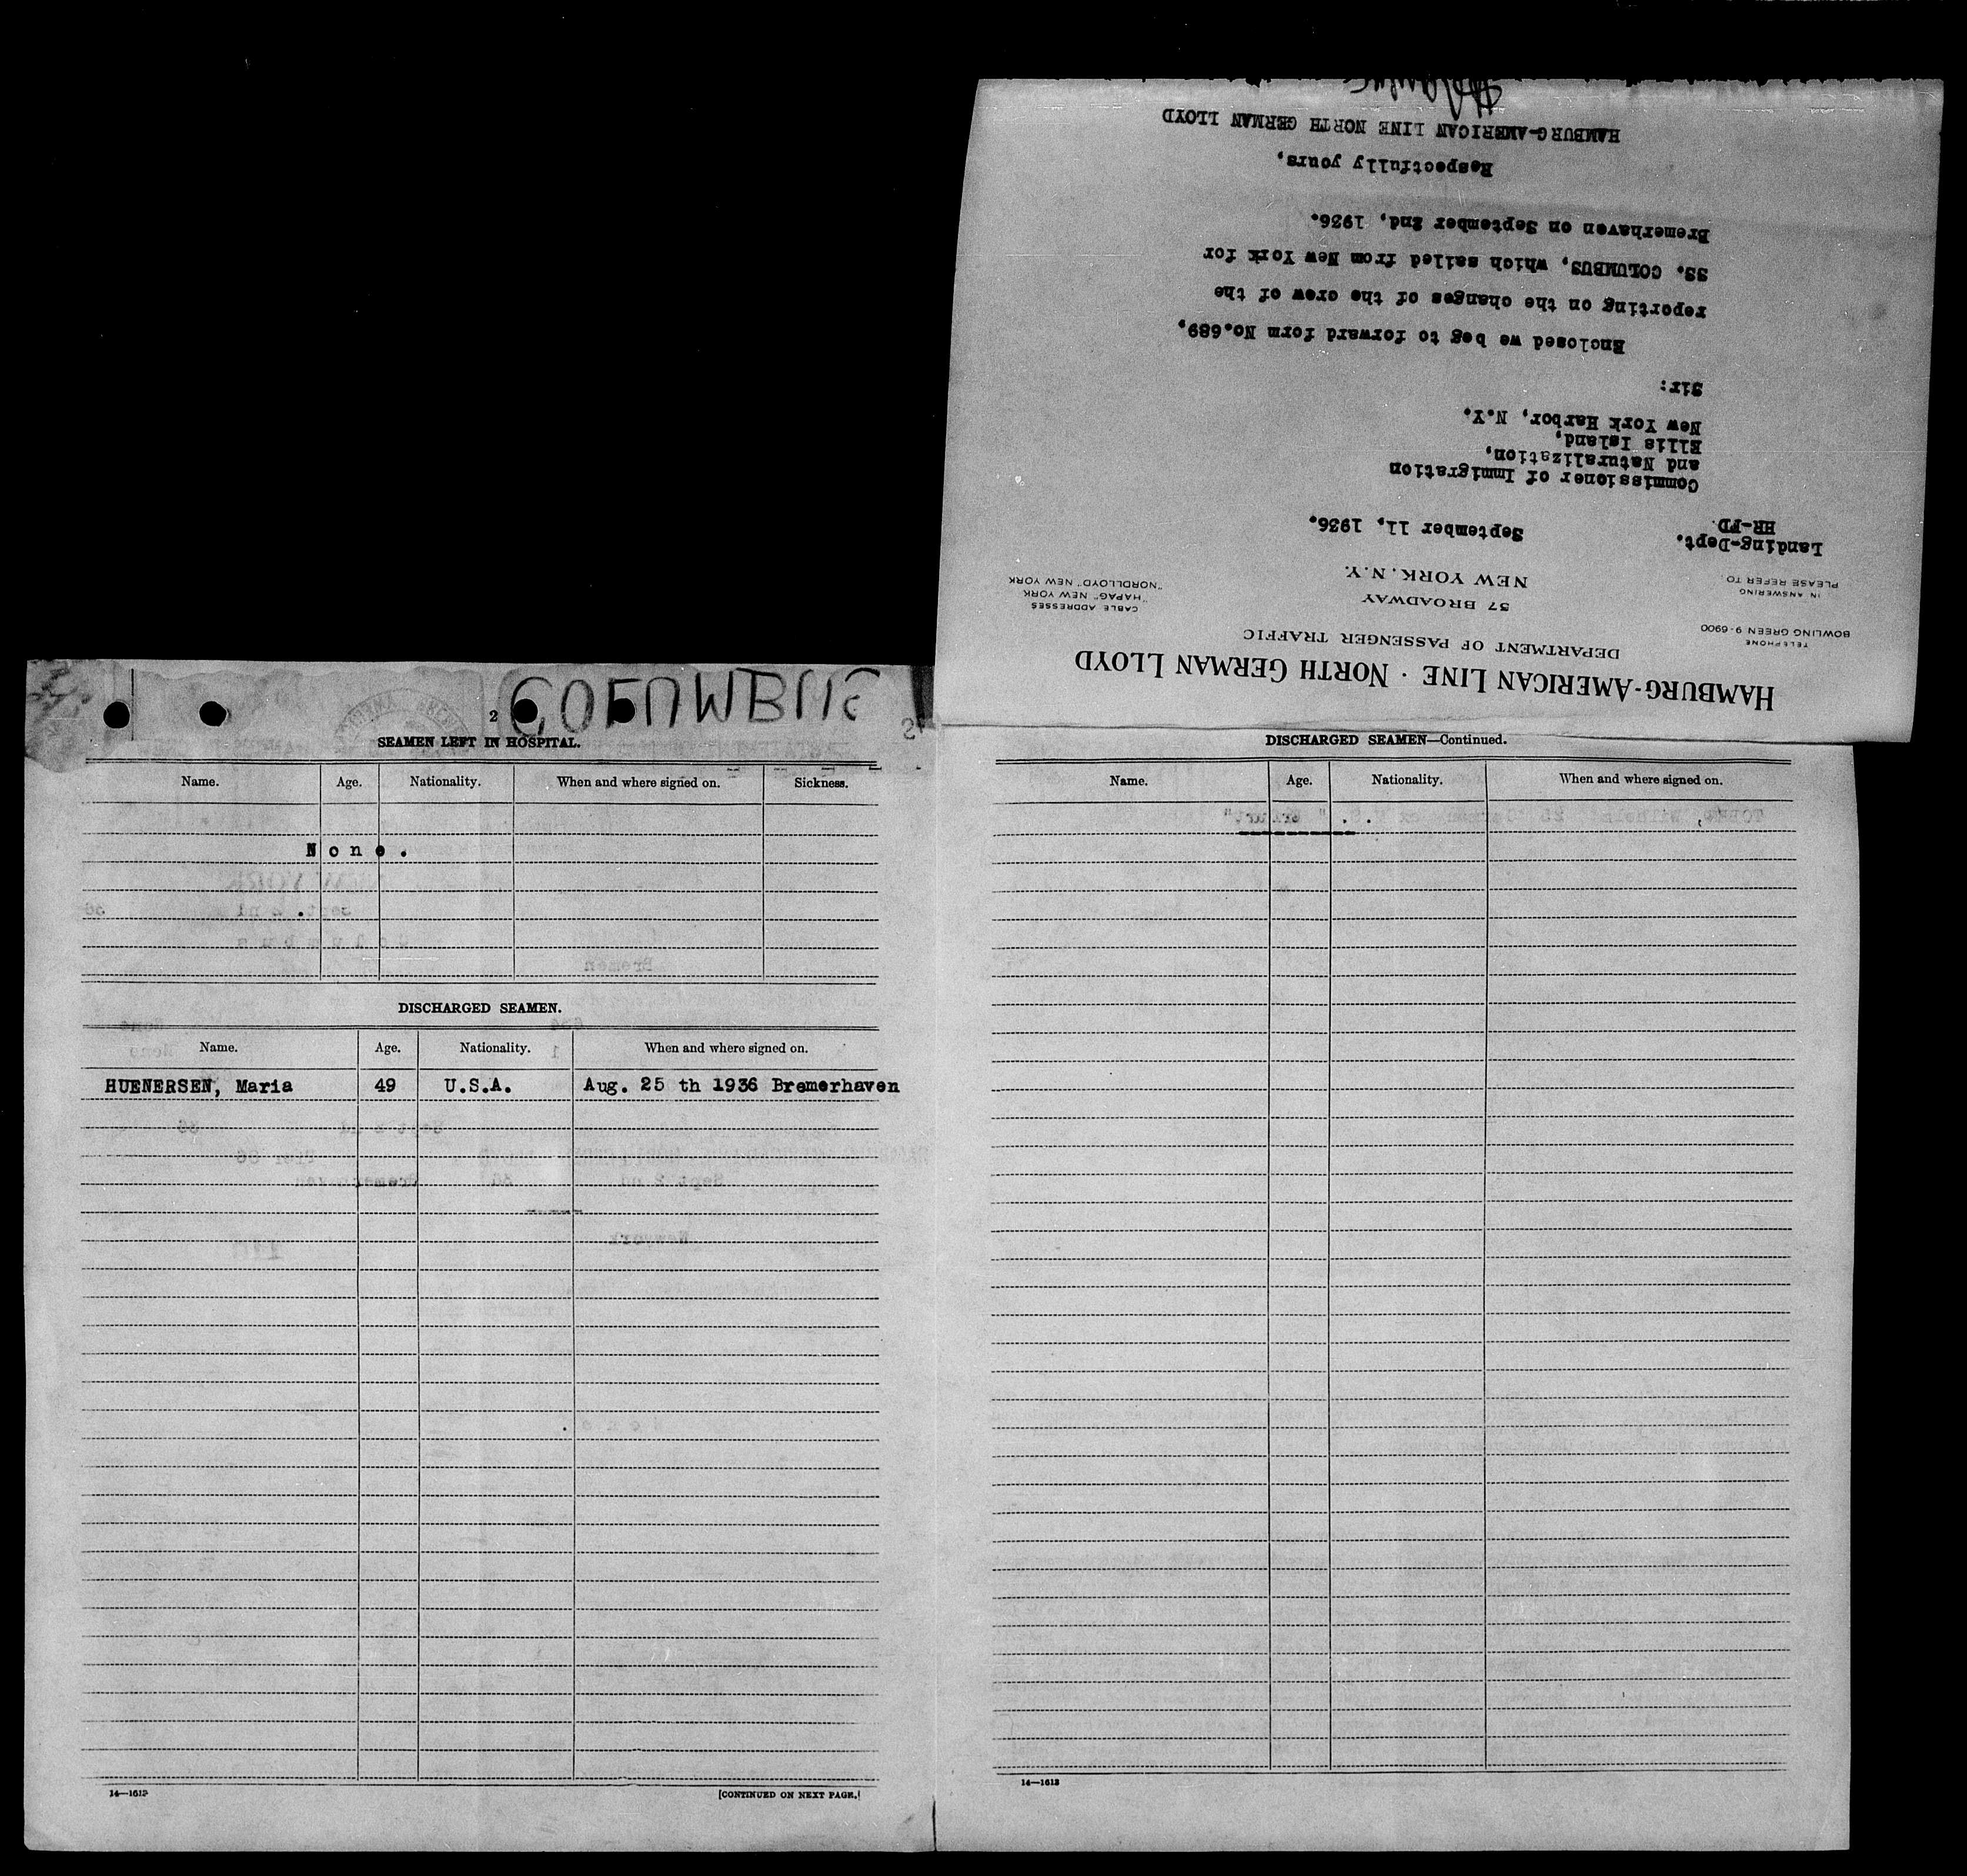 HAMBURG-AMERICAN LINE · NORTH GERMAN LLOYD
DEPARTMENT OF PASSENGER TRAFFIC
57 BROADWAY
NEW YORK, N.Y.
TELEPHONE
BOWLING GREEN 9-6900
IN ANSWERING
PLEASE REFER TO
CABLE ADDRESSES
"HAPAG" NEW YORK
"NORDLLOYD" NEW YORK
Landing-Dept.
HR-FD.
September 11, 1936.
Commissioner of Immigration
and Naturalization,
Ellis Island,
New York Harbor, N.Y.
Sir:
Enclosed we beg to forward form No.689,
reporting on the changes of the crew of the
SS. COLUMBUS, which sailed from New York for
Bremerhaven on September 2nd, 1936.
Respectfully yours,
HAMBURG-AMERICAN LINE NORTH GERMAN LLOYD
2
COLUMBUS
SEAMEN LEFT IN HOSPITAL.
Name. Age. Nationality. When and where signed on. Sickness.
None.
DISCHARGED SEAMEN.
Name. Age. Nationality. When and where signed on.
HUENERSEN, Maria 49 U.S.A. Aug. 25 th 1936 Bremerhaven
14—1613
[CONTINUED ON NEXT PAGE.]
DISCHARGED SEAMEN—Continued.
Name. Age. Nationality. When and where signed on.
14—1613